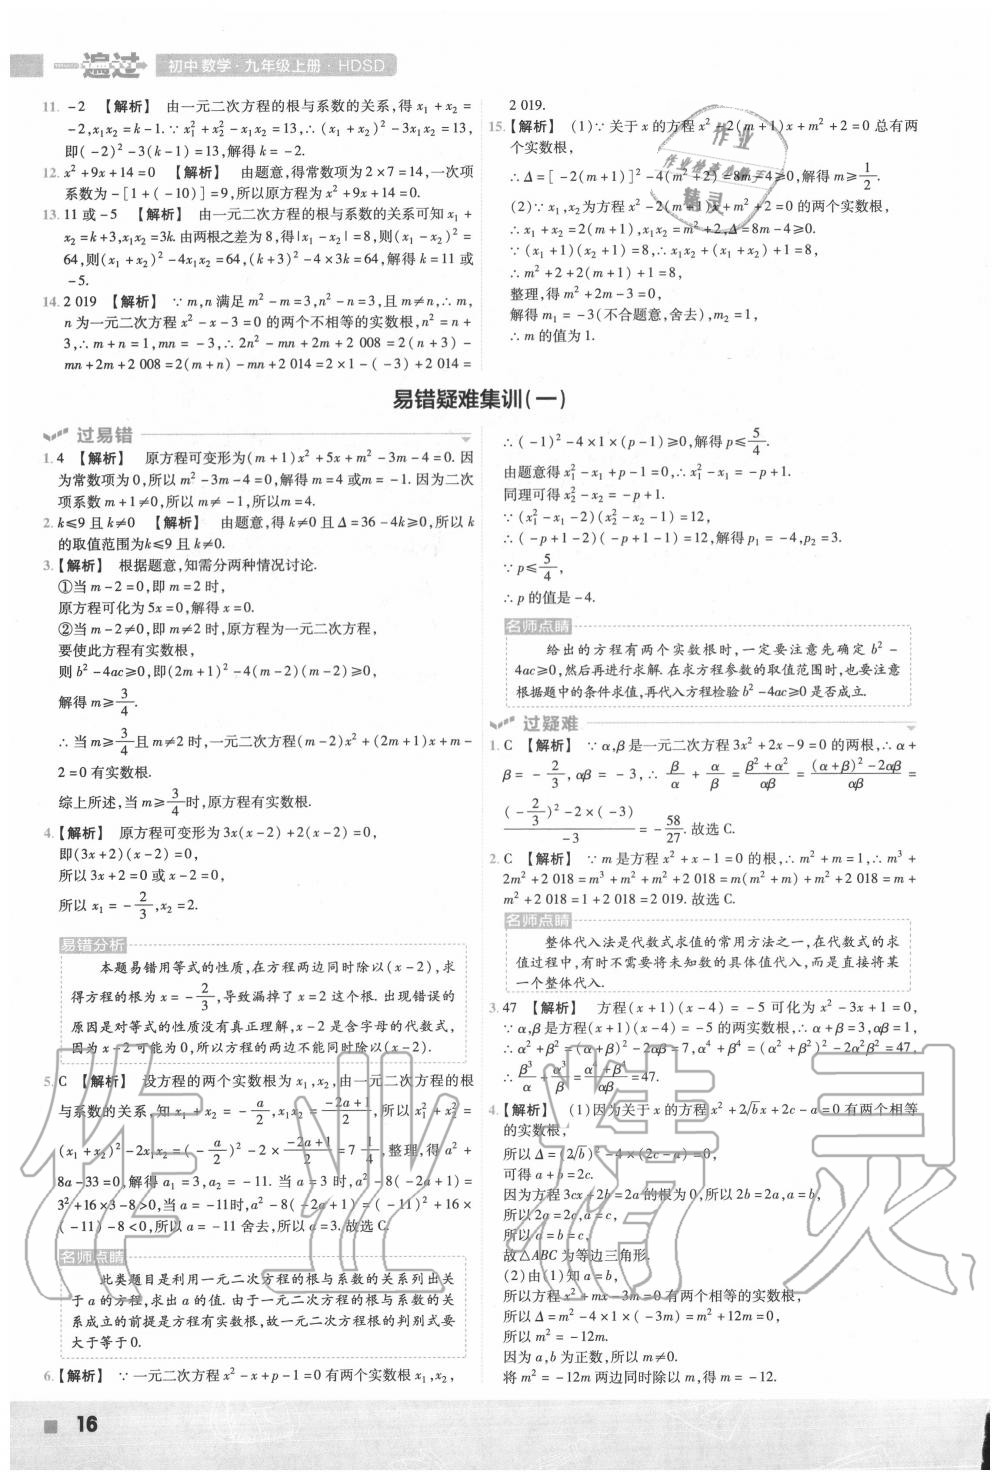 一遍过
初中 数学·九年级上册·HDSD
11. -2 【解析】 由一元二次方程的根与系数的关系,得 x₁+x₂=
-2,x₁x₂=k-1.∵x₁²+x₂²-x₁x₂=13,∴(x₁+x₂)²-3x₁x₂=13,
即(-2)²-3(k-1)=13,解得 k=-2.
12. x²+9x+14=0 【解析】 由题意,得常数项为 2×7=14,一次项
系数为-[1+(-10)]=9,所以原方程为 x²+9x+14=0.
13. 11 或-5 【解析】 由一元二次方程的根与系数的关系可知 x₁+
x₂=k+3,x₁x₂=3k.由两根之差为 8,得|x₁-x₂|=8,则(x₁-x₂)²=
64,则(x₁+x₂)²-4x₁x₂=64,(k+3)²-4×3k=64,解得 k=11 或
-5.
14. 2 019 【解析】 ∵m,n 满足 m²-m=3,n²-n=3,且 m≠n,∴m,
n 为一元二次方程 x²-x-3=0 的两个不相等的实数根,n²=n+
3,∴m+n=1,mn=-3,∴2n²-mn+2m+2 008=2(n+3)-
mn+2m+2 008=2(m+n)-mn+2 014=2×1-(-3)+2 014=
2 019.
15.【解析】 (1)∵关于 x 的方程 x²-2(m+1)x+m²+2=0 总有两
个实数根,
∴Δ=[-2(m+1)]²-4(m²+2)=8m-4≥0,解得 m≥1/2.
(2)∵x₁,x₂为方程 x²-2(m+1)x+m²+2=0 的两个实数根,
∴x₁+x₂=2(m+1),x₁x₂=m²+2,Δ=8m-4≥0.
∵(x₁+1)(x₂+1)=8,∴x₁x₂+(x₁+x₂)+1=8,
∴m²+2+2(m+1)+1=8,
整理,得 m²+2m-3=0,
解得 m₁=-3(不合题意,舍去),m₂=1,
∴m 的值为 1.
易错疑难集训(一)
过易错
1. 4 【解析】 原方程可变形为(m+1)x²+5x+m²-3m-4=0. 因
为常数项为 0,所以 m²-3m-4=0,解得 m=4 或m=-1. 因为二次
项系数 m+1≠0,所以 m≠-1,所以m=4.
2. k≤9 且 k≠0 【解析】 由题意,得 k≠0 且 Δ=36-4k≥0,所以 k
的取值范围为k≤9 且 k≠0.
3.【解析】 根据题意,知需分两种情况讨论.
①当 m-2=0,即 m=2 时,
原方程可化为 5x=0,解得 x=0.
②当 m-2≠0,即 m≠2 时,原方程为一元二次方程,
要使此方程有实数根,
则 b²-4ac≥0,即(2m+1)²-4(m-2)(m-2)≥0,
解得 m≥3/4.
∴当 m≥3/4且 m≠2 时,一元二次方程(m-2)x²+(2m+1)x+m-
2=0 有实数根.
综上所述,当 m≥3/4时,原方程有实数根.
4.【解析】 原方程可变形为 3x(x-2)+2(x-2)=0,
即(3x+2)(x-2)=0,
所以 3x+2=0 或 x-2=0,
所以 x₁=-2/3,x₂=2.
易错分析
本题易错用等式的性质,在方程两边同时除以(x-2),求
得方程的根为 x=-2/3,导致漏掉了 x=2 这个根. 出现错误的
原因是对等式的性质没有真正理解,x-2 是含字母的代数式,
因为 x-2 可能为 0,所以方程的两边不能同时除以(x-2).
5. C 【解析】 设方程的两个实数根为 x₁,x₂,由一元二次方程的根
与系数的关系,知 x₁+x₂=-a/2,x₁x₂=(-2a+1)/2,所以 x₁²+x₂²=
(x₁+x₂)²-2x₁x₂=(-a/2)²-2×(-2a+1)/2=7 1/4,整理,得 a²+
8a-33=0,解得 a₁=3,a₂=-11. 当 a=3 时,a²-8(-2a+1)=
3²+16×3-8>0,当 a=-11时,a²-8(-2a+1)=(-11)²+16×
(-11)-8<0,所以 a=-11 舍去,所以 a=3. 故选 C.
名师点睛
此类题目是利用一元二次方程的根与系数的关系列出关
于 a 的方程,求出 a 的值. 由于一元二次方程的根与系数的关
系成立的前提是方程有实数根,故一元二次方程根的判别式要
大于等于 0.
6.【解析】 ∵一元二次方程 x²-x+p-1=0 有两个实数根 x₁,x₂,
∴(-1)²-4×1×(p-1)≥0,解得 p≤5/4.
由题意得x₁²-x₁+p-1=0,∴x₁²-x₁=-p+1.
同理可得x₂²-x₂=-p+1.
∵(x₁²-x₁-2)(x₂²-x₂-1)=12,
∴(-p+1-2)(-p+1-1)=12,解得 p₁=-4,p₂=3.
∵p≤5/4,
∴p 的值是-4.
名师点睛
给出的方程有两个实数根时,一定要注意先确定 b²-
4ac≥0,然后再进行求解. 在求方程参数的取值范围时,也要注意
根据题中的条件求值,再代入方程检验 b²-4ac≥0 是否成立.
过疑难
1. C 【解析】 ∵α,β是一元二次方程 3x²+2x-9=0 的两根,∴α+
β=-2/3,αβ=-3,∴β/α+α/β=(β²+α²)/αβ=((α+β)²-2αβ)/αβ=
((-2/3)²-2×(-3))/-3=-58/27. 故选 C.
2. C 【解析】 ∵m 是方程 x²+x-1=0 的根,∴m²+m=1,∴m³+
2m²+2 018=m³+m²+m²+2 018=m(m²+m)+m²+2 018=m+
m²+2 018=1+2 018=2 019. 故选 C.
名师点睛
整体代入法是代数式求值的常用方法之一,在代数式的求
值过程中,有时不需要将未知数的具体值代入,而是直接将某
一个整体代入.
3. 47 【解析】 方程(x+1)(x-4)=-5 可化为 x²-3x+1=0,
∵α,β是方程(x+1)(x-4)=-5 的两实数根,∴α+β=3,αβ=1,
∴α²+β²=(α+β)²-2αβ=7,α⁴+β⁴=(α²+β²)²-2α²β²=47,
∴β³/α+α³/β=(α⁴+β⁴)/αβ=47.
4.【解析】 (1)因为关于 x 的方程 x²+2√b x+2c-a=0 有两个相等
的实数根,
所以 Δ=(2√b)²-4×(2c-a)=0,
可得 a+b=2c.
因为方程 3cx+2b=2a 的根为 0,所以 2b=2a,a=b,
所以 2a=2c,a=c,
所以 a=b=c,
故△ABC 为等边三角形.
(2)由(1)知 a=b,
所以方程 x²+mx-3m=0 有两个相等的实数根,
所以 Δ=m²-4×1×(-3m)=m²+12m=0,
所以 m²=-12m.
因为 a,b 为正数,所以 m≠0.
将 m²=-12m 两边同时除以 m,得 m=-12.
16
作业精灵
作业
精灵